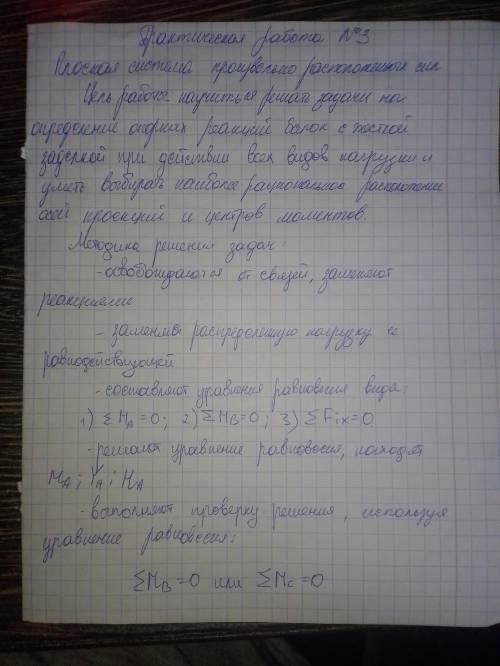 Практическая работа №3
Плоская система произвольно расположенных сил
Цель работы: научиться решать задачи на
определение опорных реакций балок с жесткой
заделкой при действии всех видов нагрузки и
уметь выбирать наиболее рациональное расположение
осей проекций и центров моментов.
Методика решения задач:
- освобождаются от связей, заменяют
реакциями
- заменяют распределенную нагрузку ее
равнодействующей
- составляют уравнения равновесия вида:
1) ΣMA=0; 2) ΣMB=0; 3) ΣFix=0
- решают уравнение равновесия, находят
MA; VA; HA
- выполняют проверку решения, используя
уравнение равновесия:
ΣMB=0 или ΣMC=0